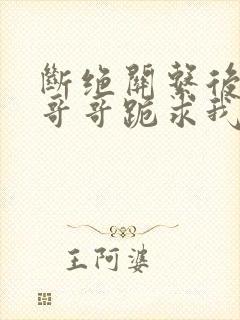 斷绝關繫後
哥哥跪求我
王阿婆